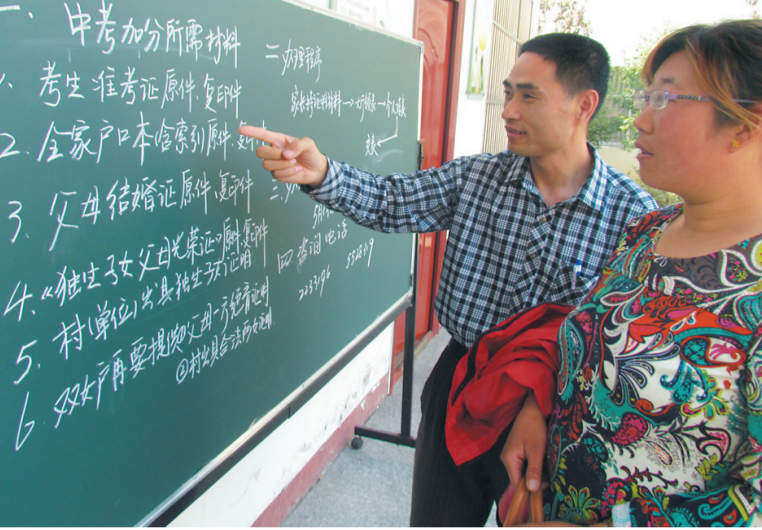 一、中考加分所需材料
1、考生准考证原件、复印件
2、全家户口本(含索引)原件、复印件
3、父母结婚证原件、复印件
4、《独生子女父母光荣证》原件、复印件
5、村(单位)出具独生子女证明
6、双女户再要提供①父母一方绝育证明
②村出具合法两女证明
二、办理程序
家长持证明材料→
三、
四 咨询电话
2233196 5528219